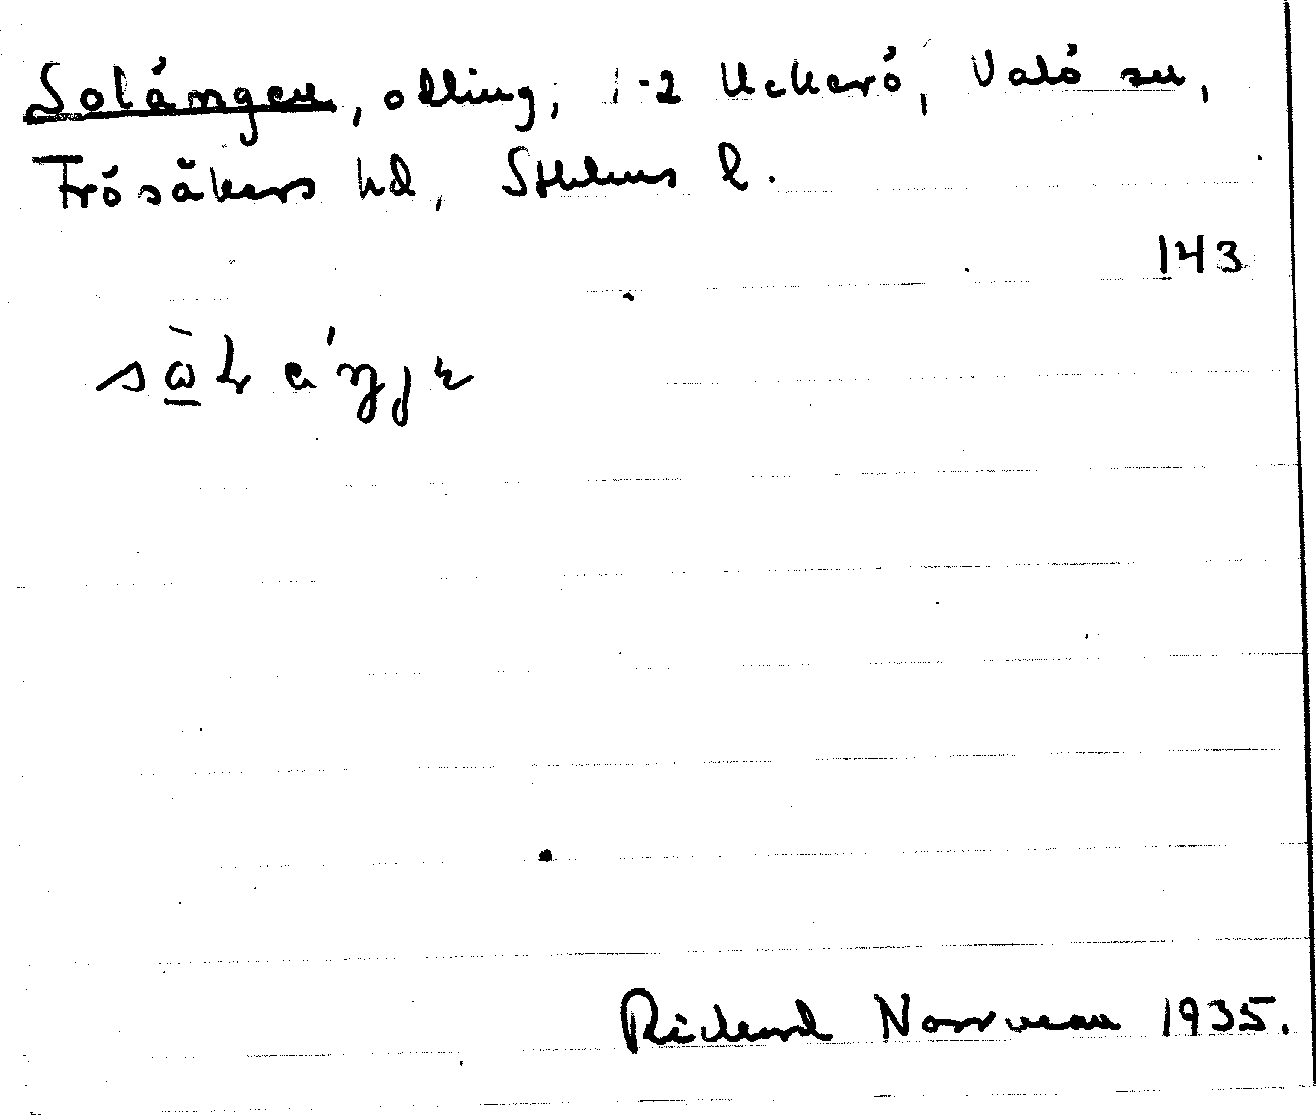 Solängen, odling, 1-2 Uckerö, Valö sn,
Frösåkers hd, Sthlms l.
143
Rickard Norrman 1935.